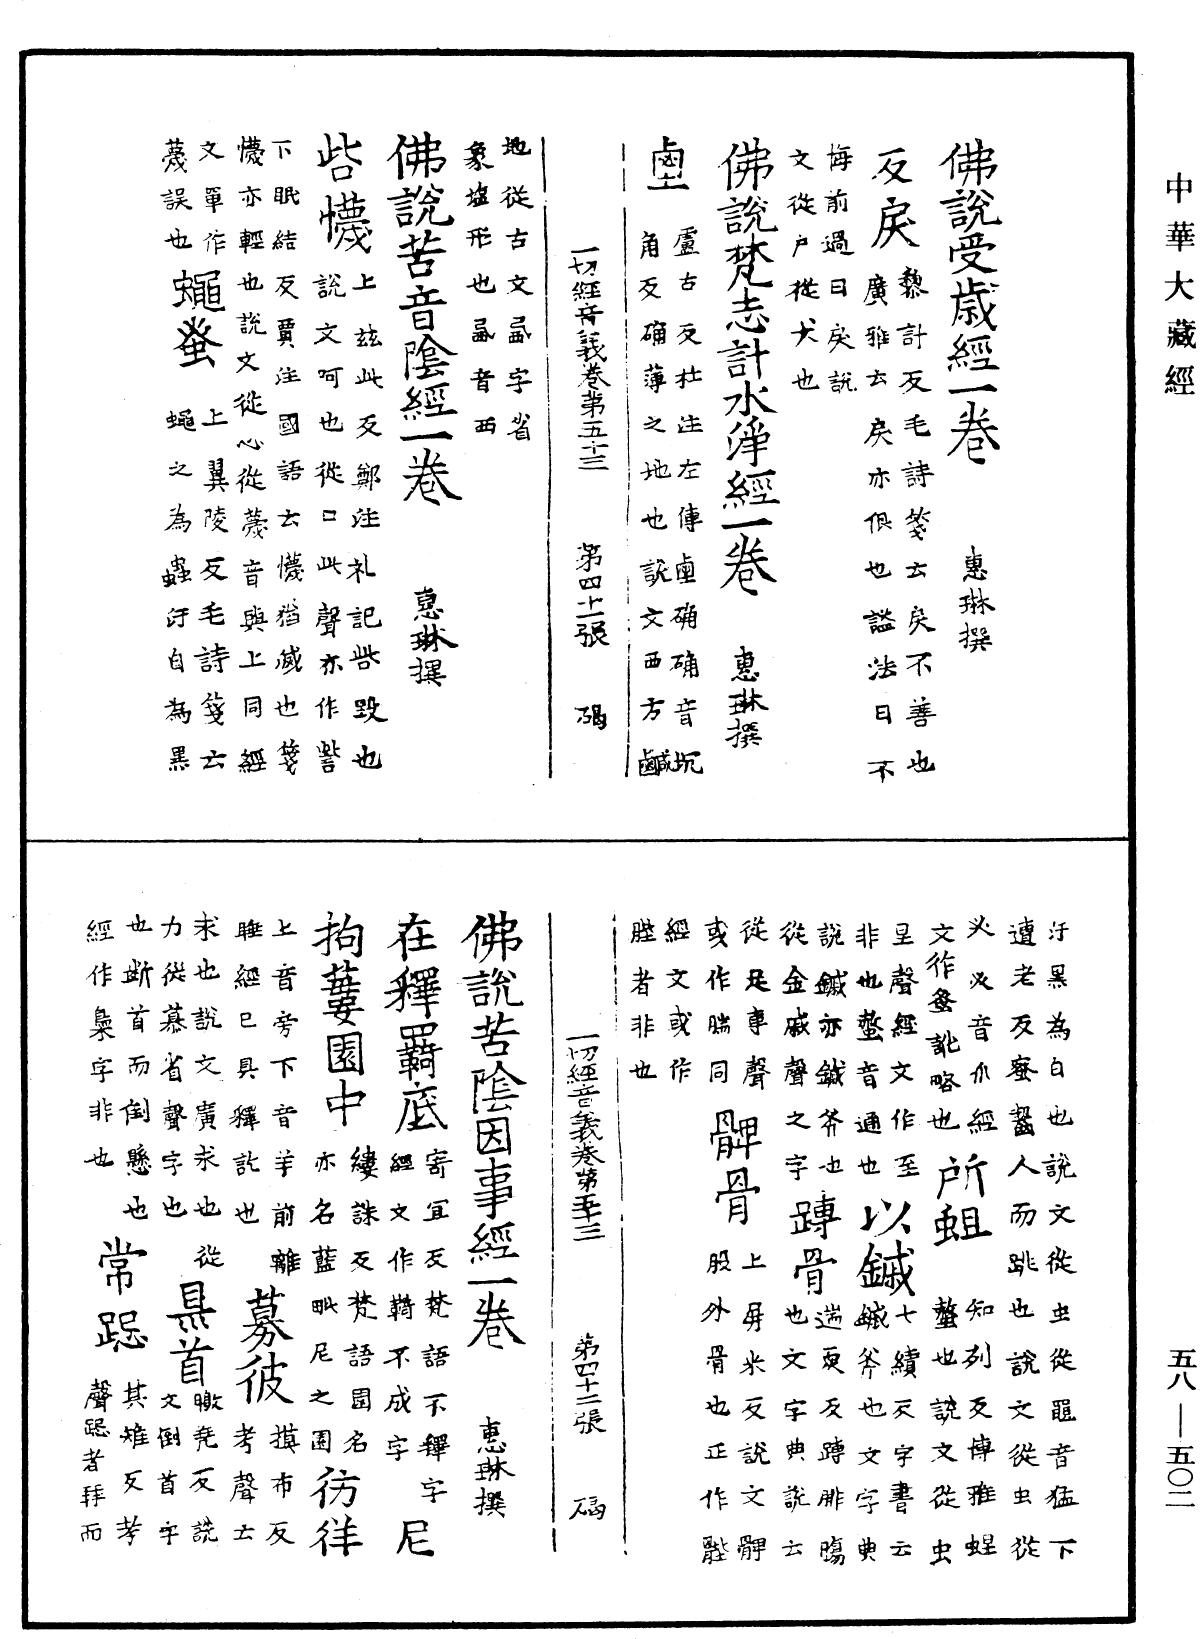 中華大藏經
佛說受歲經一卷 惠琳撰
反戾 黎計反毛詩箋云戾不善也
廣雅云戾亦佷也謚法曰不
悔前過曰戾說
文從戶從犬也
佛說梵志計水淨經一卷 惠琳撰
鹵 盧古反杜注左傳鹵确确音坑
角反确薄之地也說文西方鹹
一切經音義卷第五十三 第四十一張 碣
地從古文𠧸字省
象塩形也𠧸音西
佛說苦音陰經一卷 惠琳撰
呰懱 上茲此反鄭注礼記呰毀也
說文呵也從口此聲亦作訾
下眠結反賈注國語云懱猶滅也箋
懱亦輕也說文從心從蔑音與上同經
文單作
蔑誤也
蠅蚤 上翼陵反毛詩箋云
蠅之為蟲汙白為黑
汙黑為白也說文從虫從黽音猛下
遭老反蚤齧人而跳也說文從虫從
㕚㕚音爪經
文作蚤訛略也
所蛆 知列反博雅蛆
螫也說文從虫
旦聲經文作至
非也螫音通也
以鍼 七續反字書云
鍼斧也文字典
說鍼亦鍼斧也
從金戚聲之字
蹲骨 遄耎反蹲腓腸
也文字典說云
從足專聲
或作腨同
髀骨 上屏米反說文髀
股外骨也正作䯗
經文或作
䏶者非也
一切經音義卷第五十三 第四十二張 碣
佛說苦陰因事經一卷 惠琳撰
在釋羈底 寄宜反梵語不釋字
經文作䩭不成字
尼拘蔞園中 縷誅反梵語園名
亦名藍毗尼之園
彷徉
上音旁下音羊前離
睡經已具釋訖也
募彼 摸布反
考聲云
求也說文廣求也從
力從慕省聲字也
県首 曒堯反說
文倒首字
也斷首而倒懸也
經作梟字非也
常跽 其雉反考
聲跽者拜而
五八—五〇二